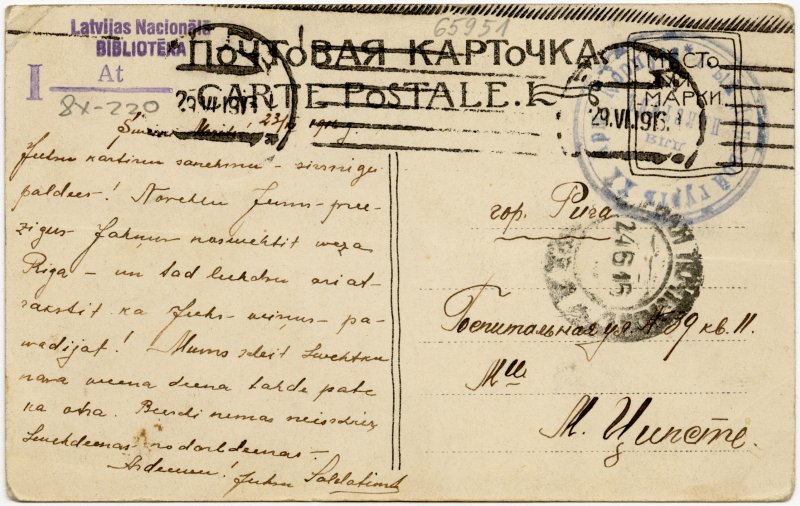 Latvijas Nacionālā
BIBLIOTĒKA
I
At
8x-220
65951
ПОЧТОВАЯ КАРТОЧКА
CARTE POSTALE.
МѢСТО
ДЛЯ
МАРКИ.
29.VI.1916
29.VI.1916
23/VI
Juhsu kartinu sanehmu - sirsnigs
paldees! Novehlu Jums pree-
zigus Jahnus nosvehtit weza
Riga - un tad luhdsu ari at-
rakstit ka Juhs viņus pa-
wadijat! Mums scheit Swehtku
nava weena deena tahda pate
ka otra. Beeschi nemas neisschķiŗ
Swehtdeenas no darbdeenas -
Ardeewu! Juhsu Saldatinsch
24 6 16
гор. Рига
Госпитальная ул. № 39 кв. 11.
Мlle
М. Ципсте.